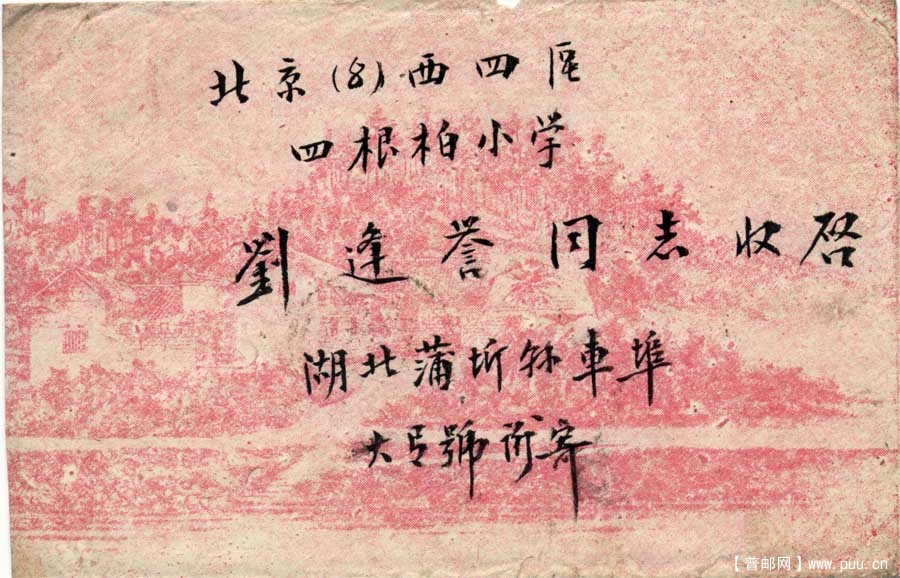 北京(8)西四区
四根柏小学
劉逢誉同志收启
湖北蒲圻縣車埠
大號街寄
【普邮网】www.puu.cn